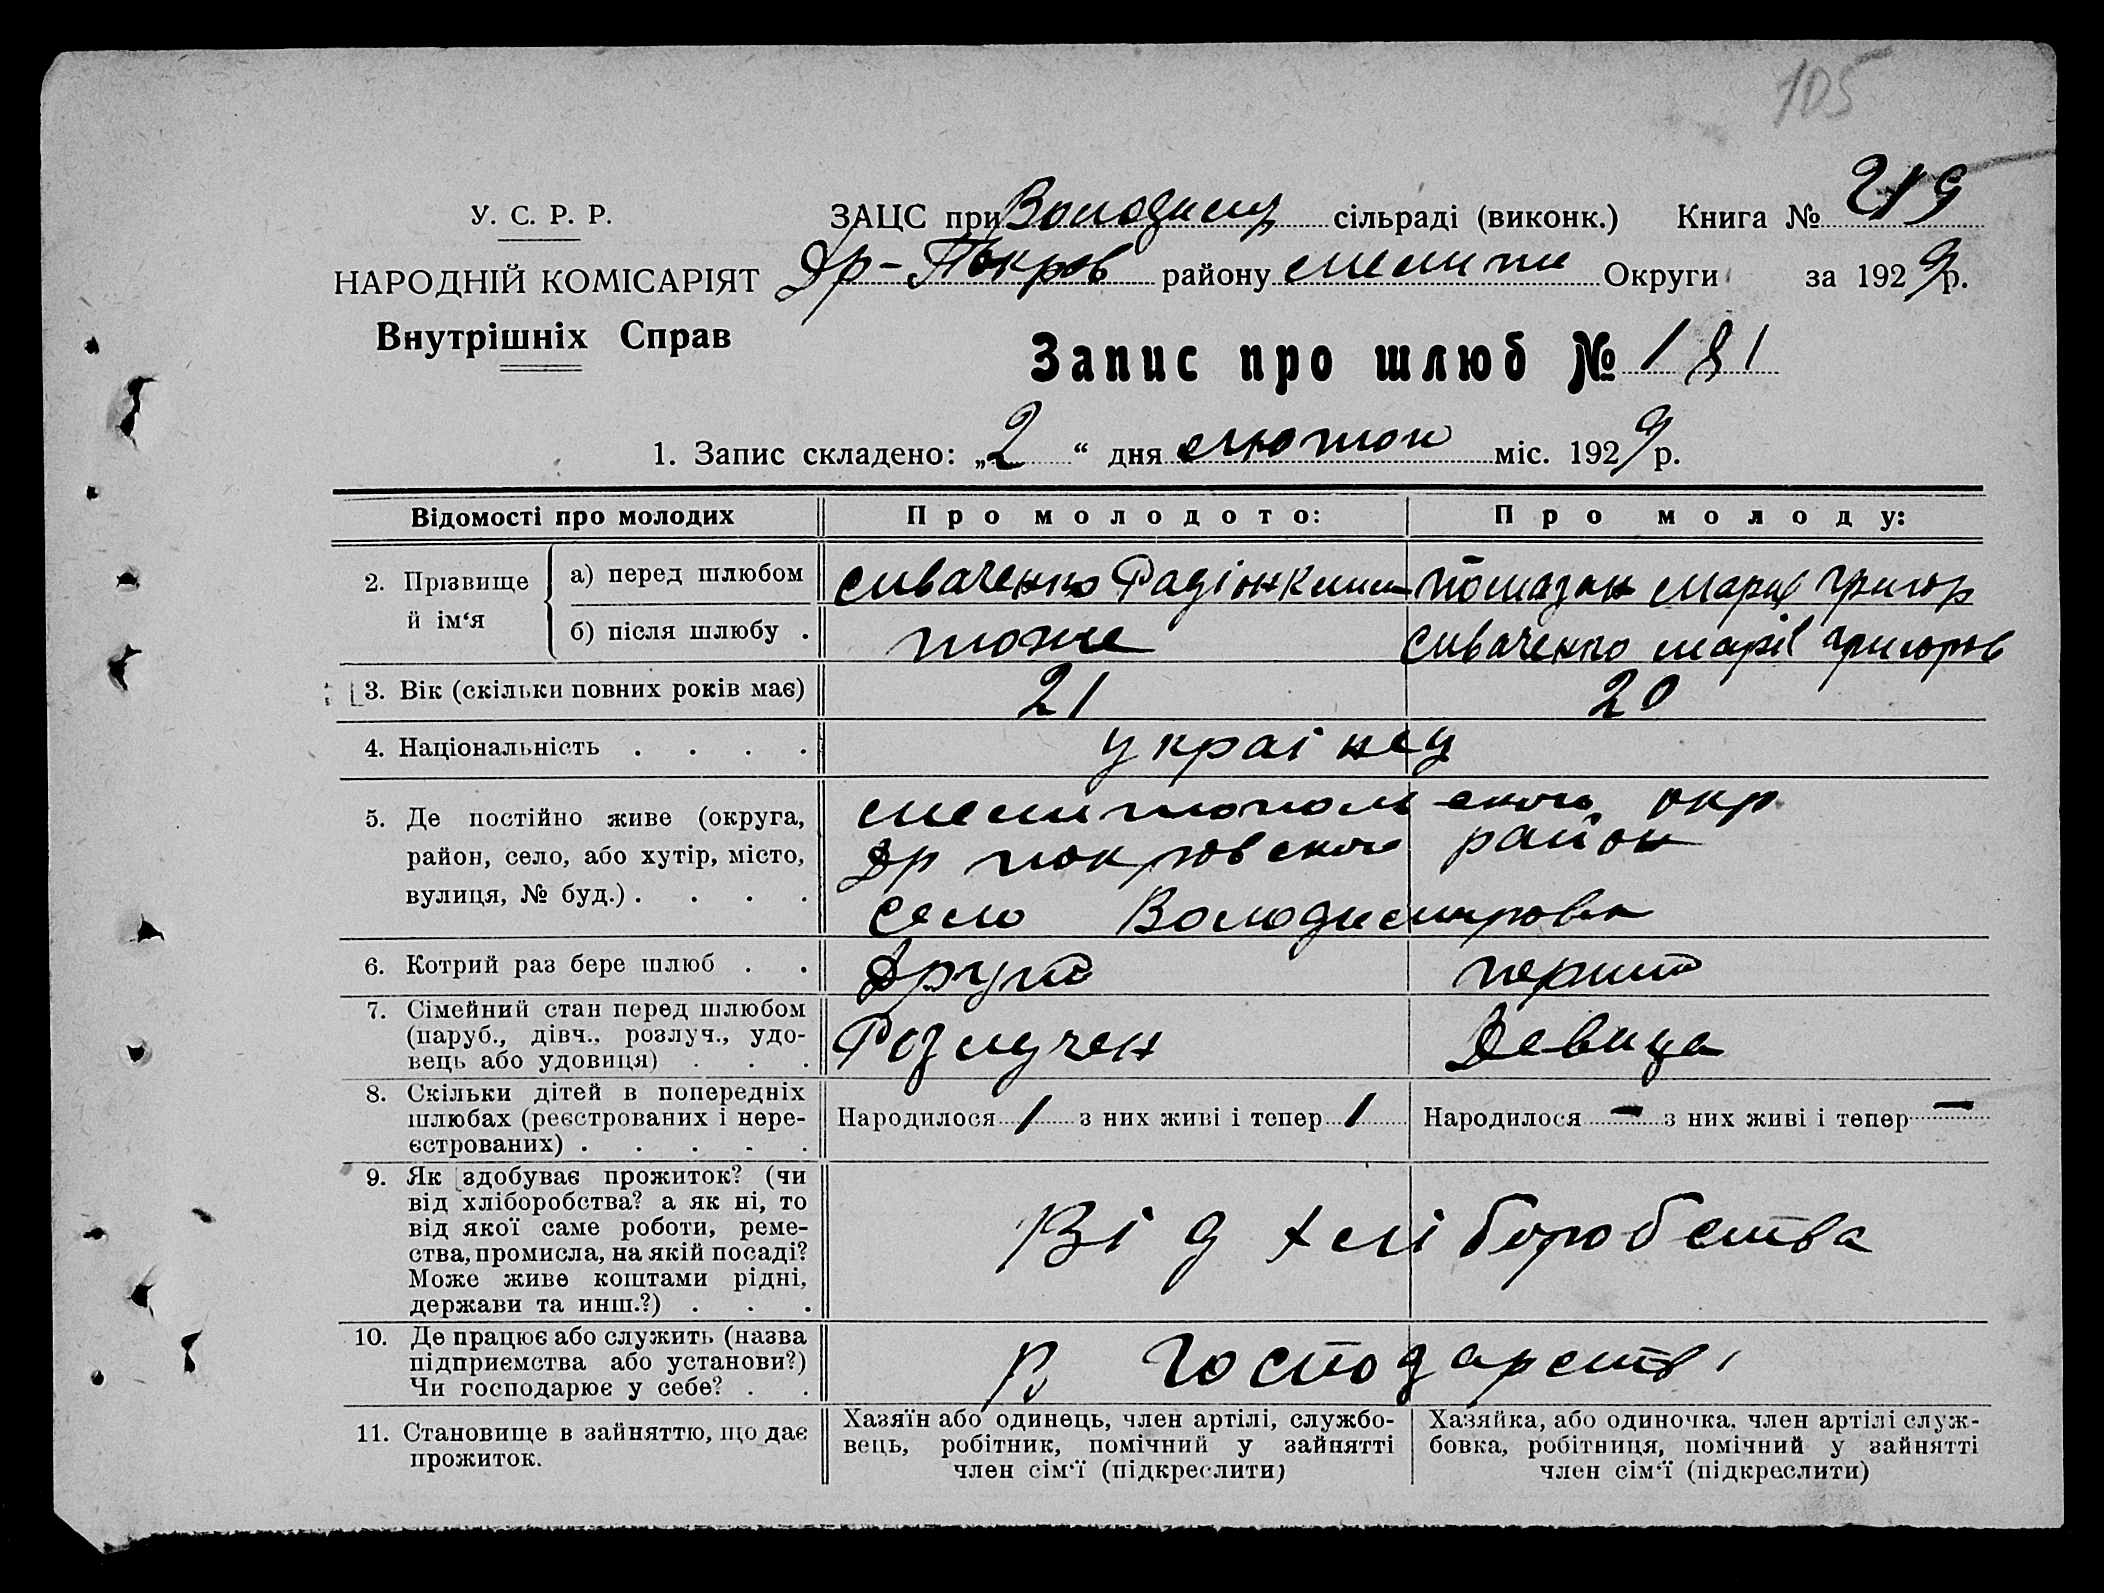 105
У. С. Р. Р.
НАРОДНІЙ КОМІСАРІЯТ
Внутрішніх Справ
ЗАЦС при Володимир сільраді (виконк.) Книга № 219
Др-Покров району мелит Округи за 1929 р.
Запис про шлюб № 181
1. Запис складено: „2“ дня лютого міс. 1929 р.
Відомості про молодих Про молодого: Про молоду:
2. Прізвище й ім‘я
а) перед шлюбом Сиваченко Радіон Клим Помазан Марія Григор
б) після шлюбу . тоже Сиваченко марія григоров
3. Вік (скільки повних років має) 21 20
4. Національність . . . . украінец
5. Де постійно живе (округа, район, село, або хутір, місто, вулиця, № буд.) . . . .
мелитопольского окр
Др покровского район
Село Володимировка
6. Котрий раз бере шлюб . . Другий перший
7. Сімейний стан перед шлюбом (паруб., дівч., розлуч., удовець або удовиця) . . . Розлучен Девица
8. Скільки дітей в попередніх шлюбах (реєстрованих і нереєстрованих) . . . . . Народилося 1 з них живі і тепер 1 Народилося – з них живі і тепер –
9. Як здобуває прожиток? (чи від хліборобства? а як ні, то від якої саме роботи, ремества, промисла, на якій посаді? Може живе коштами рідні, держави та инш.?) . . . Від хліборобства
10. Де працює або служить (назва підприємства або установи?) Чи господарює у себе? . . В господарстві
11. Становище в зайняттю, що дає прожиток.
Хазяїн або одинець, член артілі, службовець, робітник, помічний у зайнятті член сім‘ї (підкреслити)
Хазяйка, або одиночка, член артілі службовка, робітниця, помічний у зайнятті член сім‘ї (підкреслити)